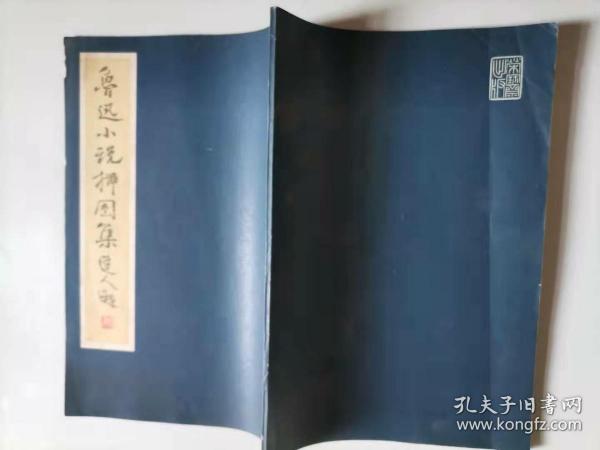 鲁迅小说插图集
荣宝斋
出版
孔夫子旧书网
www.kongfz.com